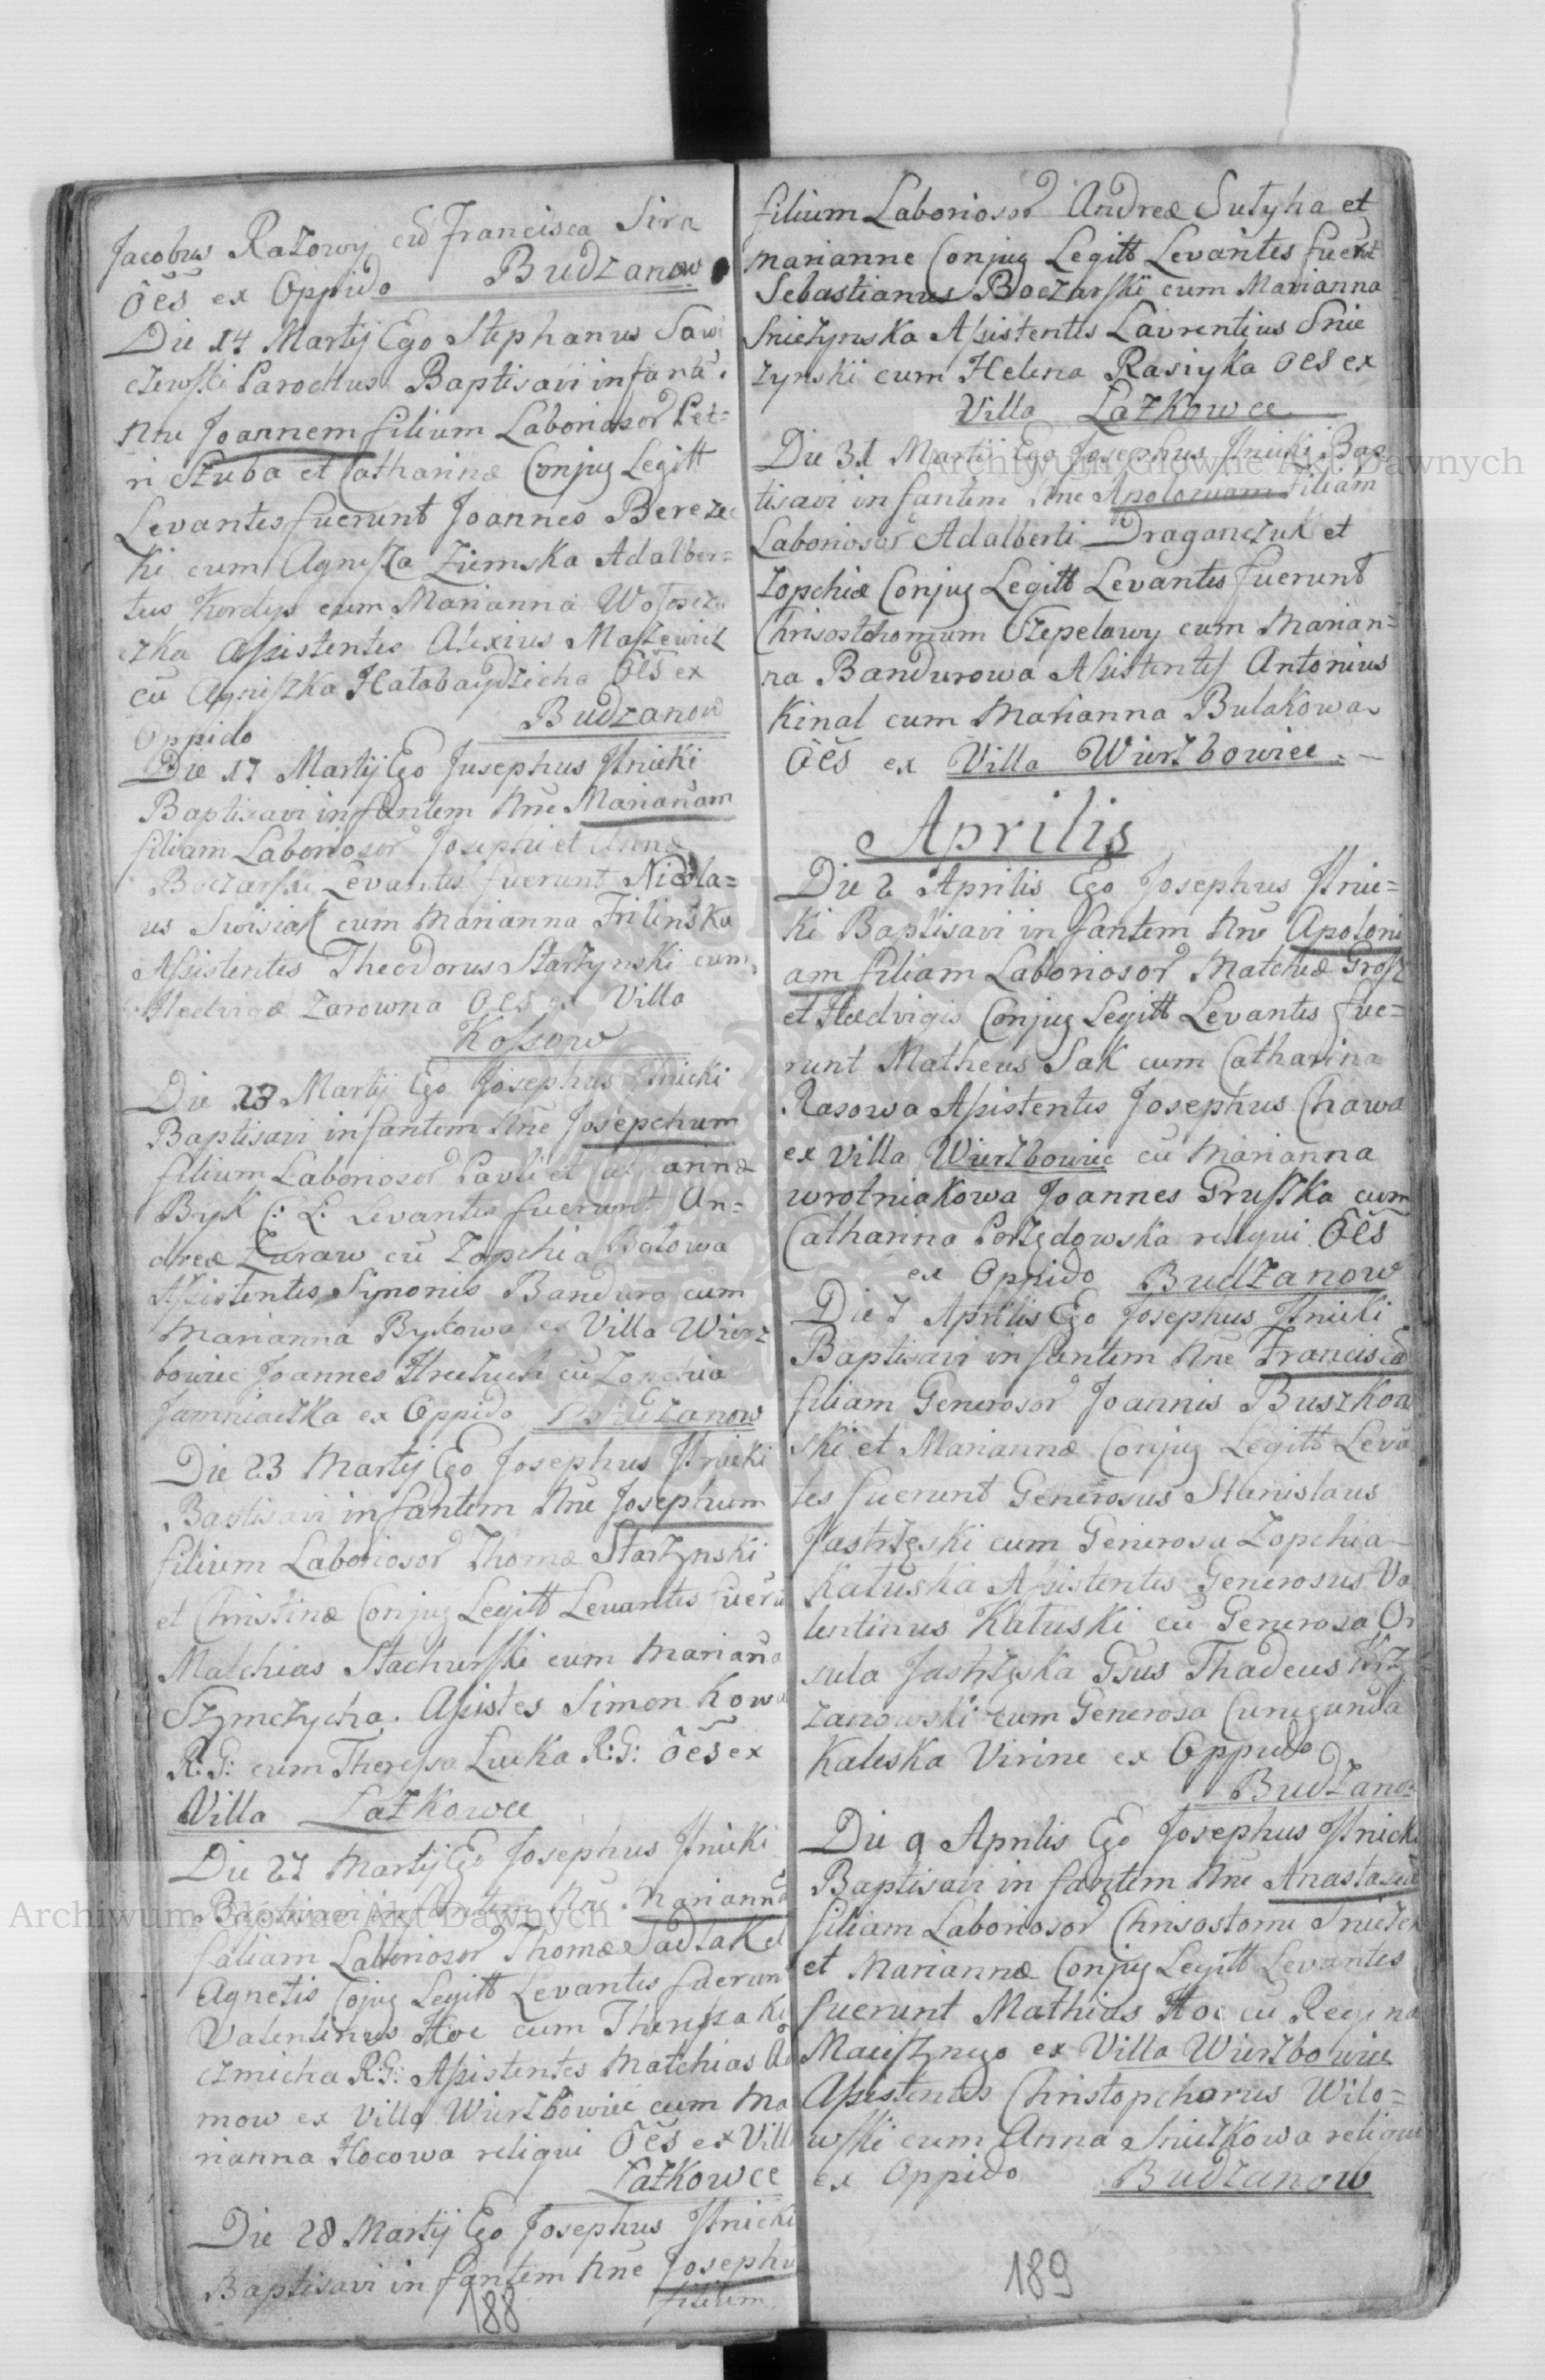 Jacobus Razowy cū Francisca Sira
ões ex Oppido Budzanow
Die 14 Martij Ego Stephanus Sawi
czewski Parochus Baptisavi infantē
Nne Joannem filium Laboriosor Pet=
ri Szuba et Catharinæ Conjug Legitt
Levantes fuerunt Joannes Berezec
ki cum Agnissza Ziemska Adalber=
tus Kordys cum Marianna
czka Assistentes Alexius Maszewicz
cū Agniszka Hatabaydzicha ões ex
Oppido Budzanow
Die 17 Martij Ego Jusephus Ilnicki
Baptisavi infantem Nne Mariañam
filiam Laboriosor Josephi et Annæ
Boczarski Levantes fuerunt Nicola=
us Swisiak cum Marianna Frilinska
Assistentes Theodorus Startynski cum
Hedvigæ Zarowna ões ex Villa
Kossow
Die 23 Martij Ego Josephus Ilnicki
Baptisavi infantem Nne Josepchum
filium Laboriosor Pavli et annæ
Byk C: L: Levantes fuerunt An=
dreæ Zuraw cū Zopchia Batowa
Assistentes Symonis Bandura cum
Marianna Bykowa ex Villa Wierz
bowiec Joannes cū Zopchia
Jamniaczka ex Oppido Budzanow
Die 23 Martij Ego Josephus Ilnicki
Baptisavi infantem Nne Josephum
filium Laboriosor Thomæ Startynski
et Christinæ Conjug Legitt Levantes fuerū
Matchias Stachurski cum Mariana
Szymczycha. Assistes Simon Kowa
R: G: cum Theressa Lucka R: G: ões ex
Villa Łazkowce
Die 27 Martij Ego Josephus Ilnicki
Baptisavi infantem Nne Marianna
filiam Laboriosor Thomæ Sadłak et
Agnetis Cojug Legitt Levantes fuerunt
Valentinus Hoc cum Theressa Ku
czmicha R: G: Assistentes Matchias Ada
mow ex Villa Wierzbowiec cum Ma
rianna Hocowa reliqui ões ex Villa
Łazkowce
Die 28 Martij Ego Josephus Ilnicki
Baptisavi infantem Nne Josephu
filium
188
filium Laboriosor Andreæ Sutyha et
Marianne Conjug Legitt Levantes fuerūt
Sebastianus Boczarski cum Marianna
Sniezynska Assistentes Lavrentius Snie
zynski cum Helena Rasiyka ões ex
Villa Łazkowce
Die 31 Martij Ego Josephus Ilnicki Bap
tisavi infantem Nne Apoloniam filiam
Laboriosor Adalberti Draganczuk et
Zopchiæ Conjug Legitt Levantes fuerunt
Chrisostchomum Czepelowy cum Marian=
na Bandurowa Assistentes Antonius
Kinal cum Marianna Bulakowa
Ões ex Villa Wierzbowiec. —
Aprilis
Die 2 Aprilis Ego Josephus Ilnic=
ki Baptisavi infantem Nne Apoloni
am filiam Laboriosor Matchiæ Grosz
et Hædvigis Conjug Legitt Levantes fue=
runt Matheus Sak cum Catharina
Rasowa Assistentes Josephus Chawa
ex Villa Wierzbowiec cū Marianna
wrotniakowa Joannes Gruszka cum
Catharina Porzędowska reliqui ões
ex Oppido Budzanow
Die 7 Aprilis Ego Josephus Ilnicki
Baptisavi infantem Nne Franciscā
filiam Generosor Joannis Buszkow
ski et Mariannæ Conjug Legitt Levā
tes fuerunt Generosus Stanislaus
Jastrzęski cum Generosa Zopchia
Katuska Assistentes Generosus Va
lentinus Katuski cū Generosa Or
sula Jastrzęska Gsus Thadeus Krz
zanowski cum Generosa Cunegunda
Kaleska Virine ex Oppido
Budzano
Die 9 Aprilis Ego Josephus Ilnicki
Baptisavi infantem Nne Anastasiā
filiam Laboriosor Chrisostomi Sniezek
et Mariannæ Conjug Legitt Levantes
fuerunt Mathias Hoc cū Regina
Maiisznego ex Villa Wierzbowiec
Assistentes Christopchorus Wilo=
wski cum Anna Sniezkowa reliqui
ex Oppido Budzanow
189
Archiwum Główne Akt Dawnych
Archiwum Główne Akt Dawnych